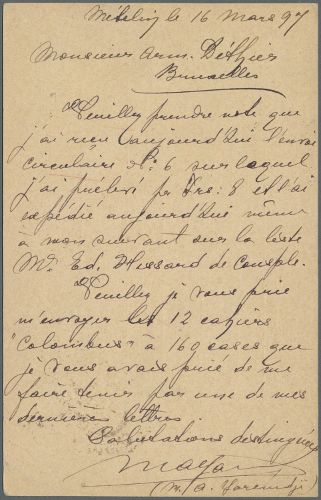 Mételin, le 16 Mars 97
Monsieur Arm. Dethier
Bruxelles
Veuillez prendre note que
j'ai reçu aujourd'hui l'envoi
circulaire No. 6 sur lequel
j'ai prélevé pr Frs: 8 et l'ai
expédié aujourd'hui même
à mon suivant sur la liste
Mr. Ed. Hussard de Consple.
Veuillez je vous prie
m'envoyer les 12 cahiers
"Colombus" à 160 cases que
je vous avais prié de me
faire tenir par une de mes
dernières lettres
Salutations distinguées